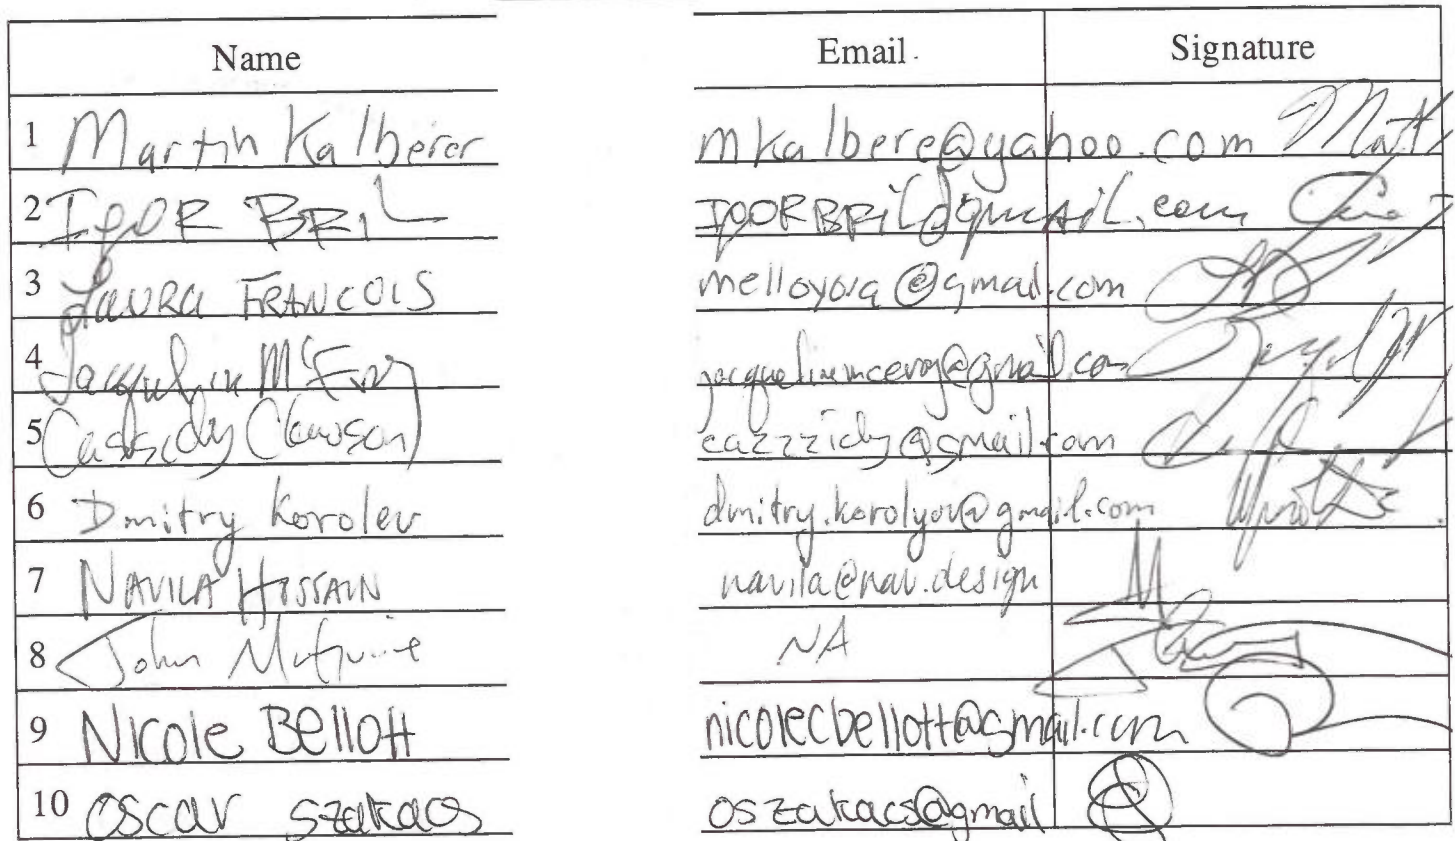 Name Email Signature
1 Martin Kalberer mkalbere@yahoo.com
2 IgOR BRIL IgORBRil@gmAiL.com
3 LauRa FRANCOIS melloyora@gmail.com
4 Jacquelin McEvoy jacquelinemcevoy@gmail.com
5 Cassidy Clawson cazzzidy@gmail.com
6 Dmitry Korolev dmitry.korolyov@gmail.com
7 NAVILA HOSSAIN navila@nav.design
8 John McGuire NA
9 Nicole Bellott nicolecbellott@gmail.com
10 Oscar szakacs oszakacs@gmail